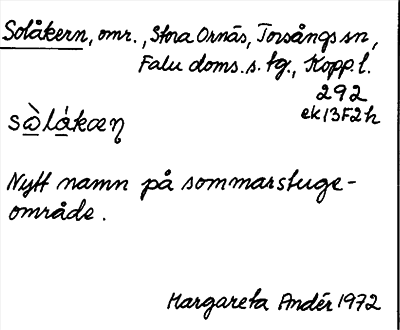 Solåkern, omr., Stora Ornäs, Torsångs sn,
Falu doms.s. tg., Kopp. l.
292
ek 13F2h
sὼlákæɳ
Nytt namn på sommarstuge-
område.
Margareta Andér 1972